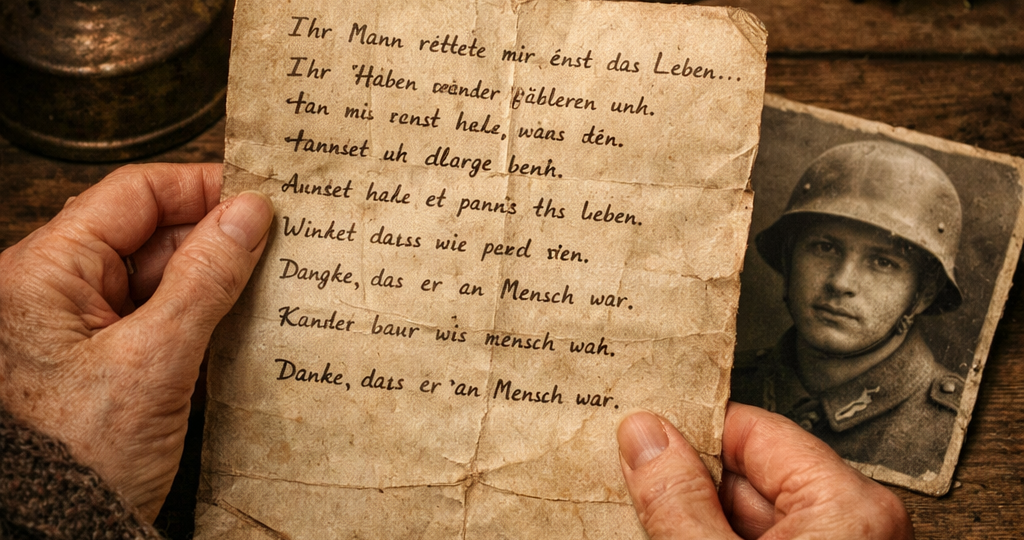 Ihr Mann réttete mir énst das Leben...
Ihr Häben unh.
tan mis ranst hake, waas dén.
tannset uh dlarge benh.
Aunset hake et panns ths leben.
Winket datss wie perd rien.
Dangke, das er an Mensch war.
Kander baur wis mensch wah.
Danke, dats er an Mensch war.